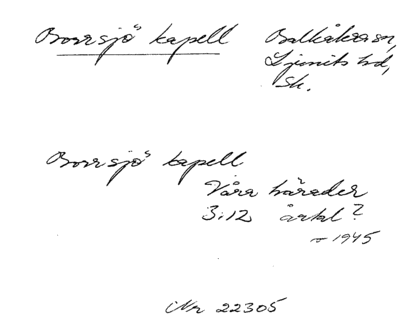 Borrsjö kapell Balkåkra sn,
Ljunits hd,
Sk.
Borrsjö kapell
Våra härader
3:12 årtal?
= 1945
Nr 22305